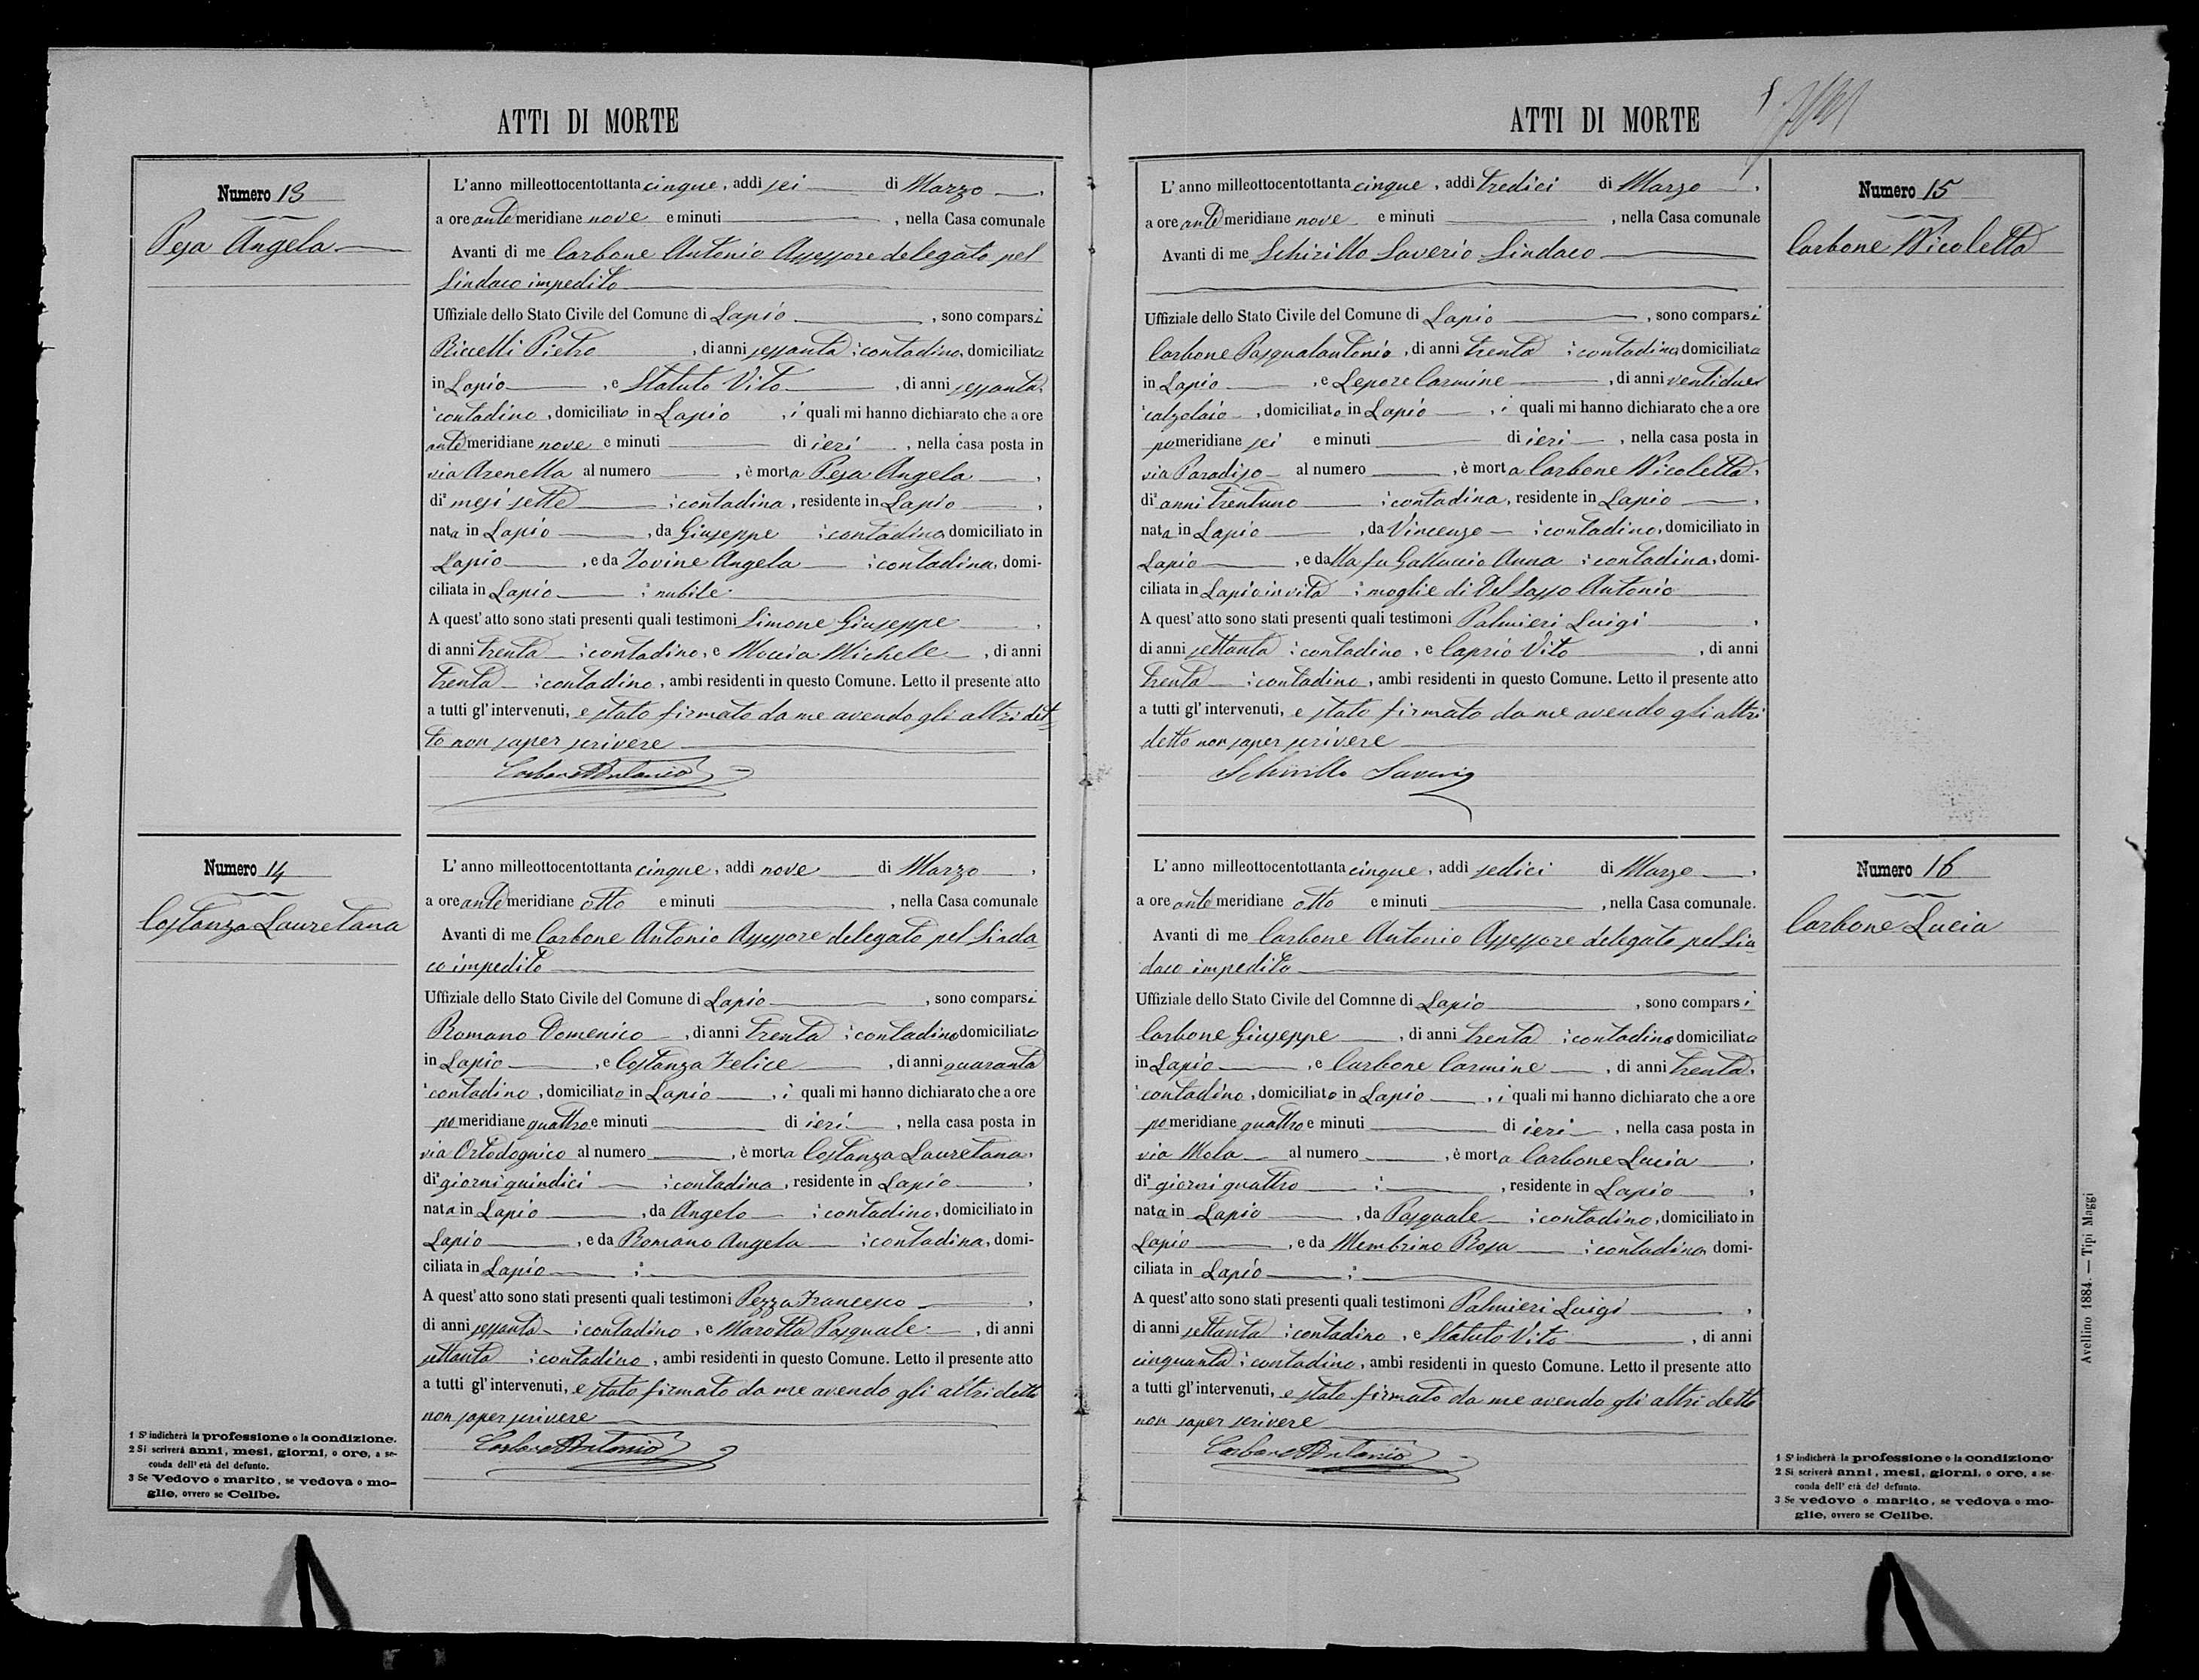 ATTI DI MORTE
Numero 13
Pesa Angela
L'anno milleottocentottanta cinque, addì sei di Marzo,
a ore antemeridiane nove e minuti , nella Casa comunale
Avanti di me Carbone Antonio Assessore delegato pel
Sindaco impedito
Uffiziale dello Stato Civile del Comune di Lapio, sono comparsi
Riccelli Pietro, di anni sessanta, contadino, domiciliato
in Lapio, e Statuto Vito, di anni sessanta,
contadino, domiciliato in Lapio, i quali mi hanno dichiarato che a ore
antemeridiane nove e minuti di ieri, nella casa posta in
via Arenella al numero , è morta Pesa Angela,
di mesi sette, contadina, residente in Lapio,
nata in Lapio, da Giuseppe, contadino, domiciliato in
Lapio, e da Iovine Angela, contadina, domi-
ciliata in Lapio, nubile
A quest'atto sono stati presenti quali testimoni Simone Giuseppe,
di anni trenta, contadino, e Moccia Michele, di anni
trenta, contadino, ambi residenti in questo Comune. Letto il presente atto
a tutti gl'intervenuti, e stato firmato da me avendo gli altri det
to non saper scrivere
Carbone Antonio
Numero 14
Costanza Lauretana
L'anno milleottocentottanta cinque, addì nove di Marzo,
a ore antemeridiane otto e minuti , nella Casa comunale
Avanti di me Carbone Antonio Assessore delegato pel Sinda-
co impedito
Uffiziale dello Stato Civile del Comune di Lapio, sono comparsi
Romano Domenico, di anni trenta, contadino domiciliato
in Lapio, e Costanza Felice, di anni quaranta
contadino, domiciliato in Lapio, i quali mi hanno dichiarato che a ore
pomeridiane quattro e minuti di ieri, nella casa posta in
via Ortodognico al numero , è morta Costanza Lauretana,
di giorni quindici, contadina, residente in Lapio,
nata in Lapio, da Angelo, contadino, domiciliato in
Lapio, e da Romano Angela, contadina, domi-
ciliata in Lapio
A quest'atto sono stati presenti quali testimoni Pezza Francesco,
di anni sessanta, contadino, e Marotta Pasquale, di anni
settanta, contadino, ambi residenti in questo Comune. Letto il presente atto
a tutti gl'intervenuti, e stato firmato da me avendo gli altri detto
non saper scrivere
Carbone Antonio
1 S'indicherà la professione o la condizione.
2 Si scriverà anni, mesi, giorni, o ore, a se-
conda dell'età del defunto.
3 Se Vedovo o marito, se vedova o mo-
glie, ovvero se Celibe.
ATTI DI MORTE
Numero 15
Carbone Nicoletta
L'anno milleottocentottanta cinque, addì tredici di Marzo,
a ore antemeridiane nove e minuti , nella Casa comunale
Avanti di me Schirillo Saverio Sindaco
Uffiziale dello Stato Civile del Comune di Lapio, sono comparsi
Carbone Pasqualantonio, di anni trenta, contadino domiciliato
in Lapio, e Lepore Carmine, di anni ventidue
calzolaio, domiciliato in Lapio, i quali mi hanno dichiarato che a ore
pomeridiane sei e minuti di ieri, nella casa posta in
via Paradiso al numero , è morta Carbone Nicoletta,
di anni trentuno, contadina, residente in Lapio,
nata in Lapio, da Vincenzo, contadino, domiciliato in
Lapio, e dalla fu Galluccio Anna, contadina, domi-
ciliata in Lapio in vita, moglie di Del Sasso Antonio
A quest'atto sono stati presenti quali testimoni Palmieri Luigi,
di anni settanta, contadino, e Caprio Vito, di anni
trenta, contadino, ambi residenti in questo Comune. Letto il presente atto
a tutti gl'intervenuti, e stato firmato da me avendo gli altri
detto non saper scrivere
Schirillo Saverio
Numero 16
Carbone Lucia
L'anno milleottocentottanta cinque, addì sedici di Marzo,
a ore antemeridiane otto e minuti , nella Casa comunale.
Avanti di me Carbone Antonio Assessore delegato pel Sin
daco impedito
Uffiziale dello Stato Civile del Comnne di Lapio, sono comparsi
Carbone Giuseppe, di anni trenta, contadino domiciliato
in Lapio, e Carbone Carmine, di anni trenta,
contadino, domiciliato in Lapio, i quali mi hanno dichiarato che a ore
pomeridiane quattro e minuti di ieri, nella casa posta in
via Mola al numero , è morta Carbone Lucia,
di giorni quattro, residente in Lapio,
nata in Lapio, da Pasquale, contadino, domiciliato in
Lapio, e da Membrino Rosa, contadina, domi-
ciliata in Lapio
A quest'atto sono stati presenti quali testimoni Palmieri Luigi,
di anni settanta, contadino, e Statuto Vito, di anni
cinquanta, contadino, ambi residenti in questo Comune. Letto il presente atto
a tutti gl'intervenuti, e stato firmato da me avendo gli altri detto
non saper scrivere
Carbone Antonio
1 S'indicherà la professione o la condizione.
2 Si scriverà anni, mesi, giorni, o ore, a se-
conda dell'età del defunto.
3 Se vedovo o marito, se vedova o mo-
glie, ovvero se Celibe.
Avellino 1884. — Tipi Maggi